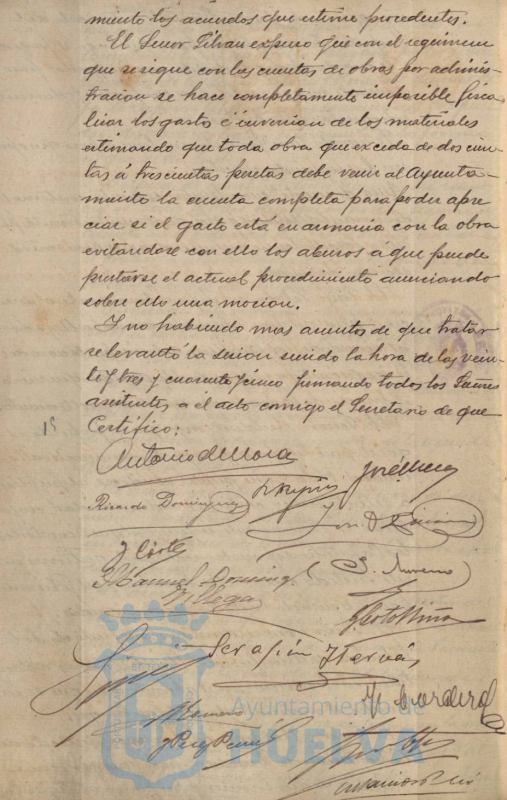 miento los acuerdos que estime procedentes.
El Señor Pílvan expuso que con el regimen
que se sigue con las cuentas de obras por adminis-
tracion se hace completamente imposible fisca
lizar los gasto é inversion de los materiales
estimando que toda obra que exceda de dos cien-
tas á trescientas pesetas debe venir al Ayunta-
miento la cuenta completa para poder apre
ciar si el gasto está en armonia con la obra
evitandose con ello los abusos á que puede
prestarse el actual procedimiento anunciando
sobre ello una mocion.
Y no habiendo mas asuntos de que tratar
se levantó la sesion siendo la hora de las vein-
te y tres y cuarenta y cinco firmando todos los Señores
asistentes a el acto conmigo el Secretario de que
Certifico:
Antonio de Mora
Ricardo Dominguez
J Cortes
Manuel Doming
S. Moreno
Vega
Serafín
M Cordero
Romero
Ayuntamiento de
HUELVA